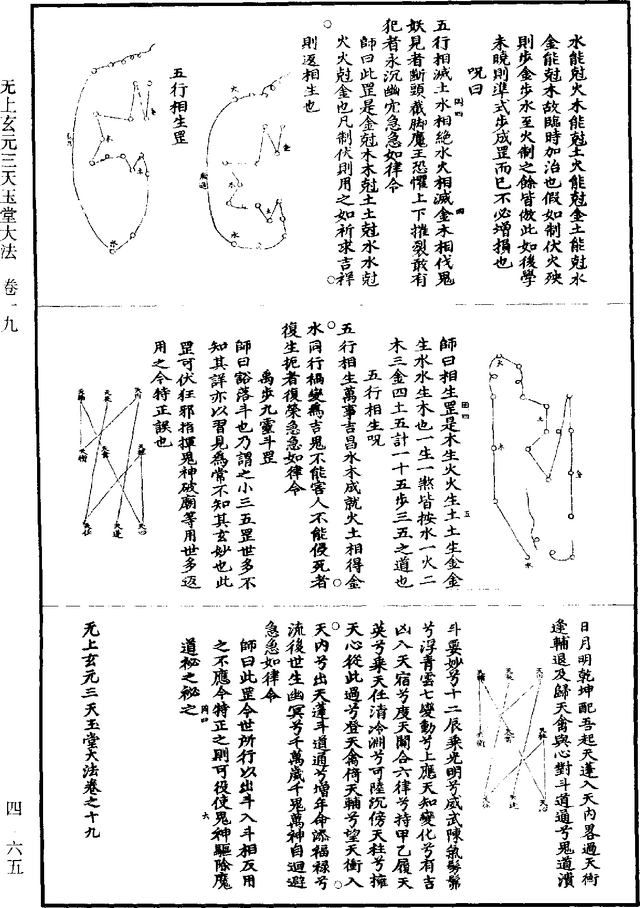 无上玄元三天玉堂大法 卷一九
四·六五
水能尅火木能尅土火能尅金土能尅水
金能尅木故臨時加治也假如制伏火殃
則步金步水至火制之餘皆倣此如後學
未曉則準式步成罡而已不必增損也
呪曰
五行相滅土水相絕水火相滅金木相伐鬼
妖見者斷頭截脚魔王恐懼上下摧裂敢有
犯者永沉幽宂急急如律令
師曰此罡是金尅木木尅土土尅水水尅
火火尅金也凡制伏則用之如祈求吉祥
則返相生也
五行相生罡
火
金
木
水
師曰相生罡是木生火火生土土生金金
生水水生木也一生一煞皆按水一火二
木三金四土五計一十五步三五之道也
五行相生呪
五行相生萬事吉昌水木成就火土相得金
水同行禍變為吉鬼不能害人不能侵死者
復生扼者復榮急急如律令
禹步九靈斗罡
師曰豁落斗也乃謂之小三五罡世多不
知其詳亦以習見為常不知其玄妙也此
罡可伏狂邪指揮鬼神破廟等用世多返
用之今特正誤也
天輔
天英
天內
天衝
天任
天蓬
天心
日月明乾坤配吾起天蓬入天內畧過天衝
逢輔退及歸天禽與心對斗道通兮鬼道潰
斗要妙兮十二辰乘光明兮威武陳氣髣髴
兮浮青雲七變動兮上應天知變化兮有吉
凶入天宿兮度天關合六律兮持甲乙履天
英兮乘天任清冷淵兮可陸沉傍天柱兮擁
天心從此過兮登天禽倚天輔兮望天衝入
天內兮出天蓬斗道通兮增年命添福祿兮
流後世生幽冥兮千萬歲千鬼萬神自迴避
急急如律令
師曰此罡今世所行以出斗入斗相反用
之不應今特正之則可役使鬼神驅除魔
道祕之祕之
无上玄元三天玉堂大法卷之十九